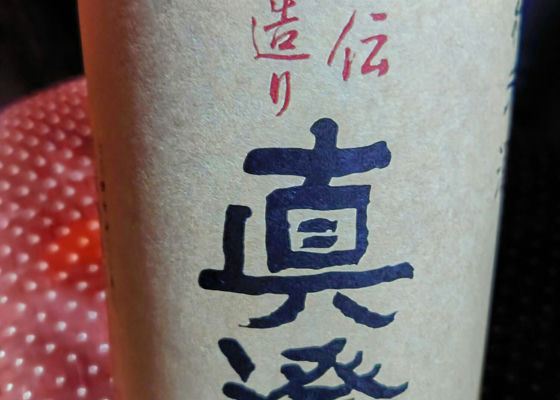 伝
造り
真澄